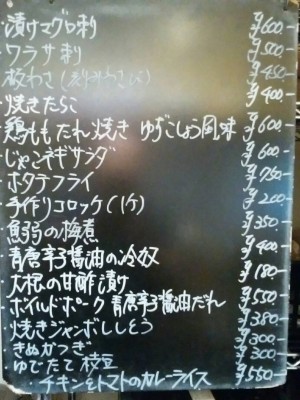 ・漬けマグロ刺 ¥600-
・ワラサ刺 ¥500-
・板わさ(刻みわさび) ¥450-
・焼きたらこ ¥400-
・鶏ももたれ焼き ゆずこしょう風味 ¥600-
・じゃこネギサラダ ¥600-
・ホタテフライ ¥750-
・手作りコロッケ(1ケ) ¥200-
・鰯の梅煮 ¥350-
・青唐辛子醤油の冷奴 ¥400-
・大根の甘酢漬け ¥180-
・ボイルドポーク 青唐辛子醤油だれ ¥550-
・焼きジャンボししとう ¥380-
・きぬかつぎ ¥300-
・ゆでたて枝豆 ¥300-
・チキンとトマトのカレーライス ¥550-